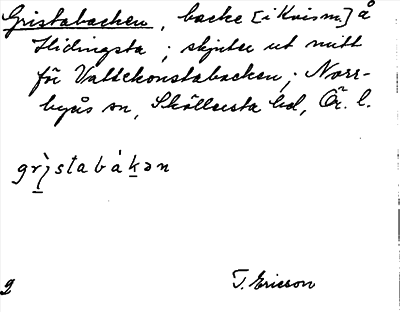 Gristabacken, backe [i Kvism.] å
Hidingsta; skjuter ut mitt
för Vattekonstabacken; Norr-
byås sn, Sköllersta hd, Ör. l.
grìstabákən
T. Ericson